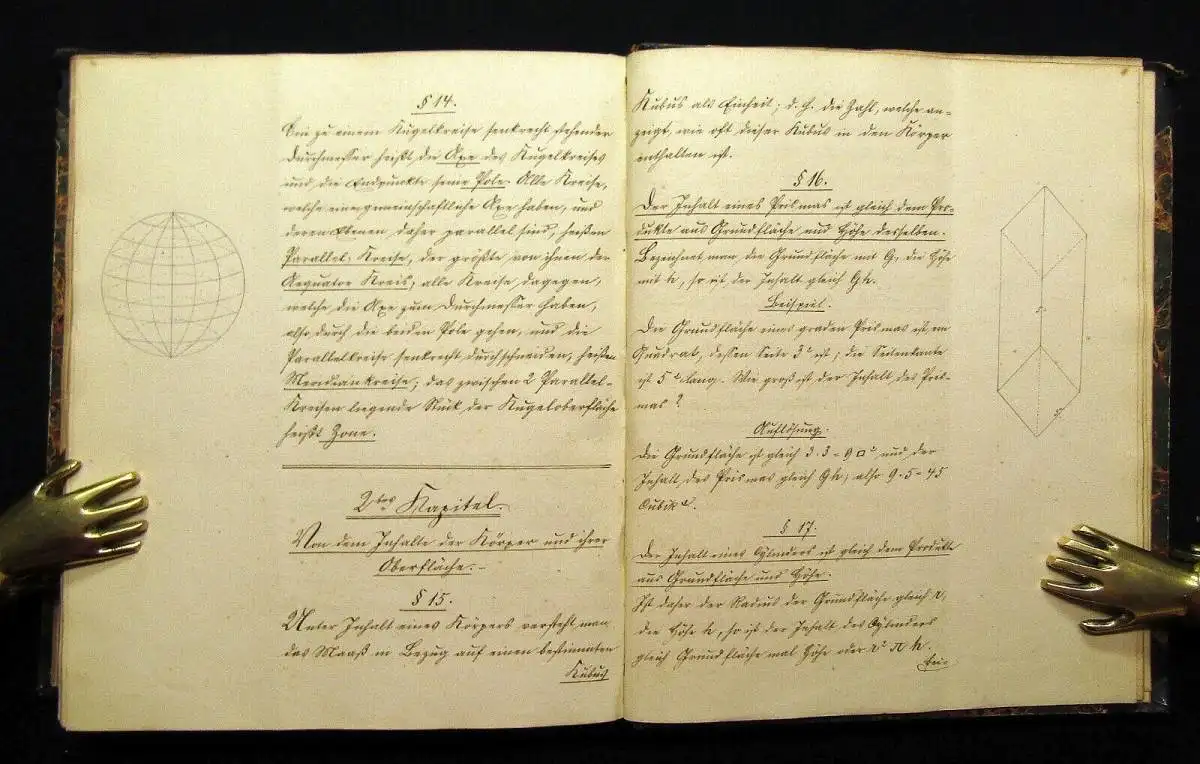 § 14.
Ein zu einem Kugelkreise senkrecht stehender
Durchmesser heißt die Axe des Kugelkreises
und die Endpunkte seine Pole. Alle Kreise,
welche eine gemeinschaftliche Axe haben, und
deren Ebenen daher parallel sind, heißen
Parallel-Kreise, der größte von ihnen der
Aequator Kreis; alle Kreise dagegen,
welche die Axe zum Durchmesser haben,
also durch die beiden Pole gehen, und die
Parallelkreise senkrecht durchschneiden, heißen
Meridiankreise; das zwischen 2 Parallel-
Kreisen liegende Stück der Kugeloberfläche
heißt Zone.
2tes Kapitel.
Von dem Inhalte der Körper und ihrer
Oberfläche.
§ 15.
Unter Inhalt eines Körpers versteht man
das Maaß in Bezug auf einen bestimmten
Kubus
Kubus als Einheit; d. h. die Zahl, welche an-
zeigt, wie oft dieser Kubus in den Körper
enthalten ist.
§ 16.
Der Inhalt eines Prismas ist gleich dem Pro-
dukte aus Grundfläche und Höhe desselben.
Bezeichnet man die Grundfläche mit G, die Höhe
mit h, so ist der Inhalt gleich Gh.
Beispiel.
Die Grundfläche eines graden Prismas ist ein
Quadrat, dessen Seite 3' ist; die Seitenkante
ist 5' lang. Wie groß ist der Inhalt des Pris-
mas?
Auflösung.
Die Grundfläche ist gleich 3 . 3 = 9 □' und der
Inhalt des Prismas gleich Gh; also 9 . 5 = 45
Cubik'.
§ 17.
Der Inhalt eines Cylinders ist gleich dem Produkte
aus Grundfläche und Höhe.
Ist daher der Radius der Grundfläche gleich r,
die Höhe h, so ist der Inhalt des Cylinders
gleich Grundfläche mal Höhe oder r² π h.
Bei-